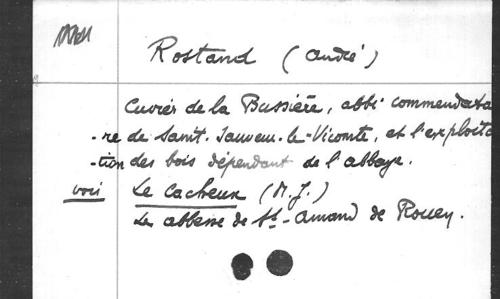 Rostand (André)
Cuvier de la Bussière, abbé commendata
-re de Saint-Sauveur-le-Vicomte, et l'exploita
-tion des bois dépendant de l'abbaye.
voir Le Cacheux (M.J.)
Les abbesses de St-Amand de Rouen.